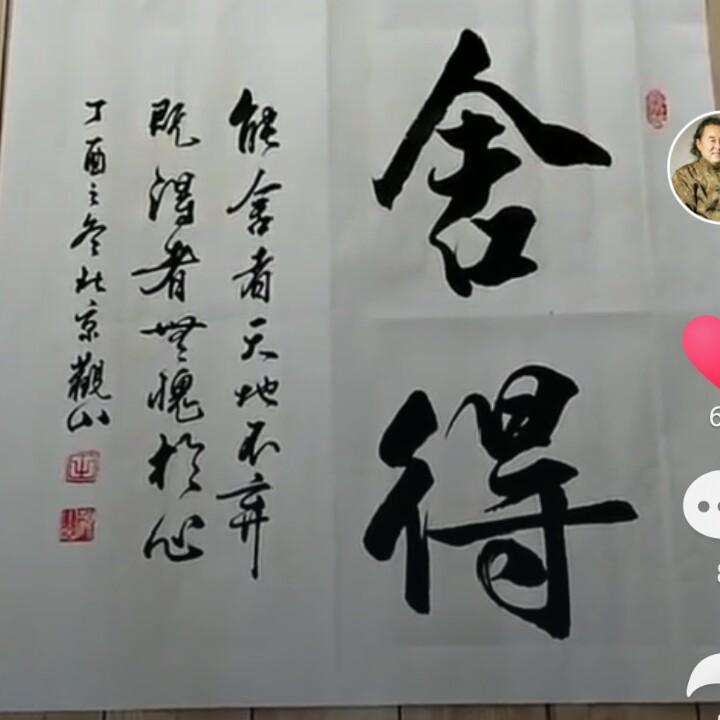 舍得
能舍者天地不弃
既得者無愧於心
丁酉之冬北京觀山